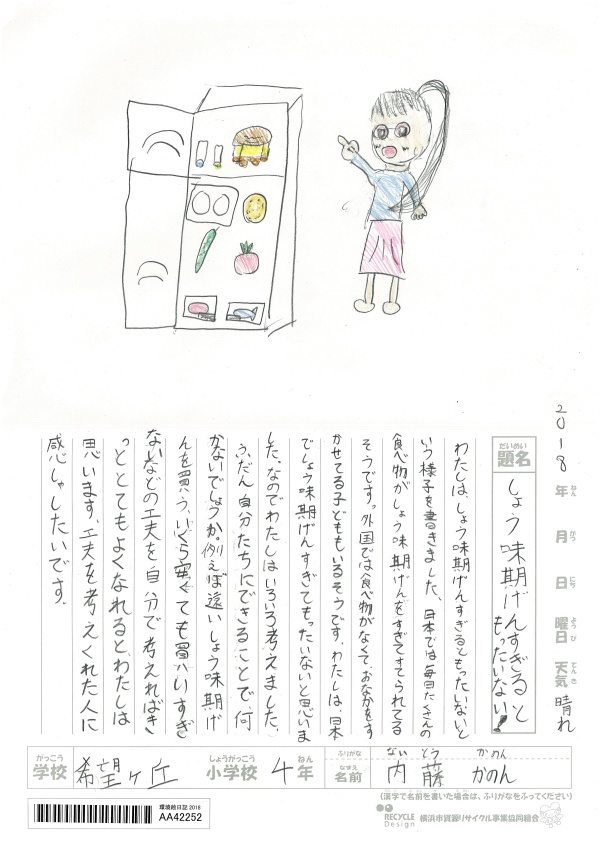 2018年 月 日 曜日 天気 晴れ
ねん がつ にち ようび てんき
だいめい
題名
しょう味期げんすぎると
もったいない!
わたしは、しょう味期げんすぎるともったいないと
いう様子を書きました。日本では毎日たくさんの
食べ物がしょう味期げんをすぎてすてられてる
そうです。外国では食べ物がなくて、おなかをす
かせてる子どももいるそうです。わたしは、日本
でしょう味期げんすぎてもったいないと思いま
した。なのでわたしはいろいろ考えました。
ふだん自分たちにできることで、何
かないでしょうか。例えば遠いしょう味期げ
んを買う、いくら安くても買いすぎ
ないなどの工夫を自分で考えればき
っととてもよくなれると、わたしは
思います。工夫を考えくれた人に
感しゃしたいです。
がっこう しょうがっこう ねん ふりがな ない とう かのん
学校 希望ヶ丘 小学校 4年 なまえ 名前 内藤 かのん
(漢字で名前を書いた場合は、ふりがなをふってください)
環境絵日記 2018
AA42252
RECYCLE Design 横浜市資源リサイクル事業協同組合